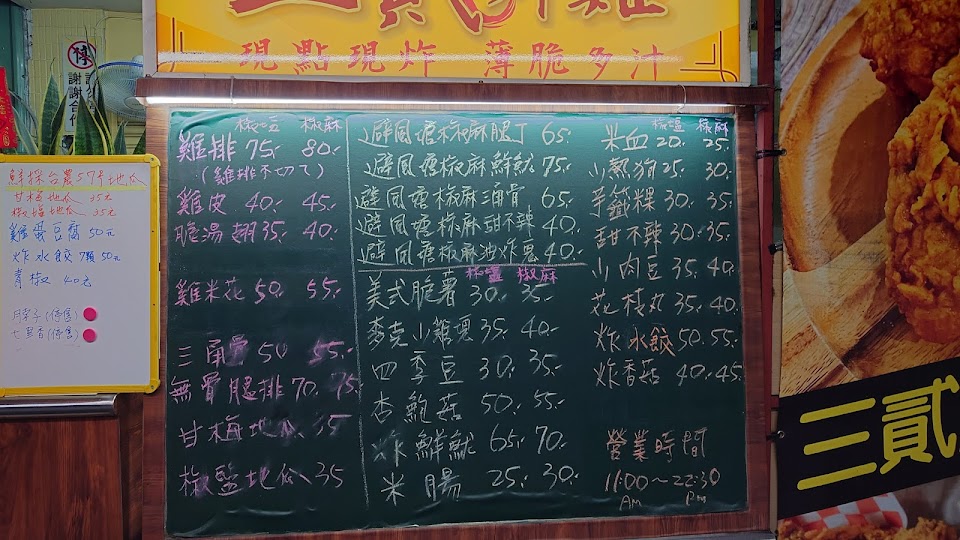 現點現炸 薄脆多汁
請勿停
謝謝合作
鮮採台農57号地瓜
甘梅地瓜 35元
椒塩地瓜 35元
雞蛋豆腐 50元
炸水餃 7顆 50元
青椒 40元
月亮子(停售)
七里香(停售)
椒塩 椒麻
雞排 75. 80.
(雞排不切了)
雞皮 40. 45.
膽湯翅 35. 40.
雞米花 50. 55.
三角骨 50 55.
無骨腿排 70. 75.
甘梅地瓜 35
椒盬地瓜 35
避風塘椒麻腿丁 65.
避風塘椒麻鮮魷 75.
避風塘椒麻三角骨 65.
避風塘椒麻甜不辣 40.
避風塘椒麻油炸蔥 40.
椒盬 椒麻
美式脆薯 30. 35.
麥克小雞塊 35. 40.
四季豆 30. 35.
杏鮑菇 50. 55.
炸鮮魷 65. 70.
米腸 25. 30.
椒塩 椒麻
米血 20. 25.
小熱狗 25. 30.
芋籤粿 30. 35.
甜不辣 30. 35.
小肉豆 35. 40.
花枝丸 35. 40.
炸水餃 50. 55.
炸香菇 40. 45.
營業時間
11:00～22:30
Am Pm
三貳